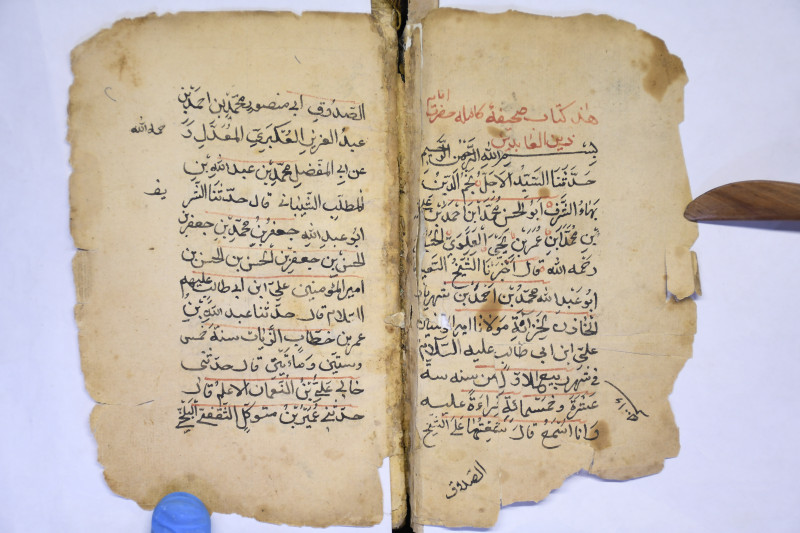 هذا كتاب صحيفة كامله حضرت امام
زين العابدين
بسم الله الرحمن الرحيم
حدثنا السيد الاجل نجم الدين
بهاء الشرف ابو الحسن محمد ابن احمد بن علي
ابن محمد ابن عمر بن يحيى العلوي الحسيني
رحمه الله قال اخبرنا الشيخ السعيد
ابو عبد الله محمد بن احمد بن شهريار
الخازن لخزانة مولانا امير المؤمنين
علي ابن ابي طالب عليه السلام
في شهر ربيع الاول من سنه ستة
عشرة وخمسمائة قراءة عليه
وانا اسمع قال سمعتها على الشيخ
الصدوق
الصدوق ابي منصور محمد بن احمد بن
عبد العزيز العكبري المعدل ر
حمه الله
عن ابي المفضل محمد بن عبد الله بن
المطلب الشيباني قال حدثنا الشر
يف
ابو عبد الله جعفر بن محمد بن جعفر بن
الحسن بن جعفر بن الحسن بن الحسن بن
امير المؤمنين علي ابن ابي طالب عليهم
السلام قال حدثنا عبد الله بن
عمر بن خطاب الزيات سنة خمس
وستين ومائتين قال حدثني
خالي علي بن النعمان الاعلم قال
حدثني عمير بن متوكل الثقفي البلخي